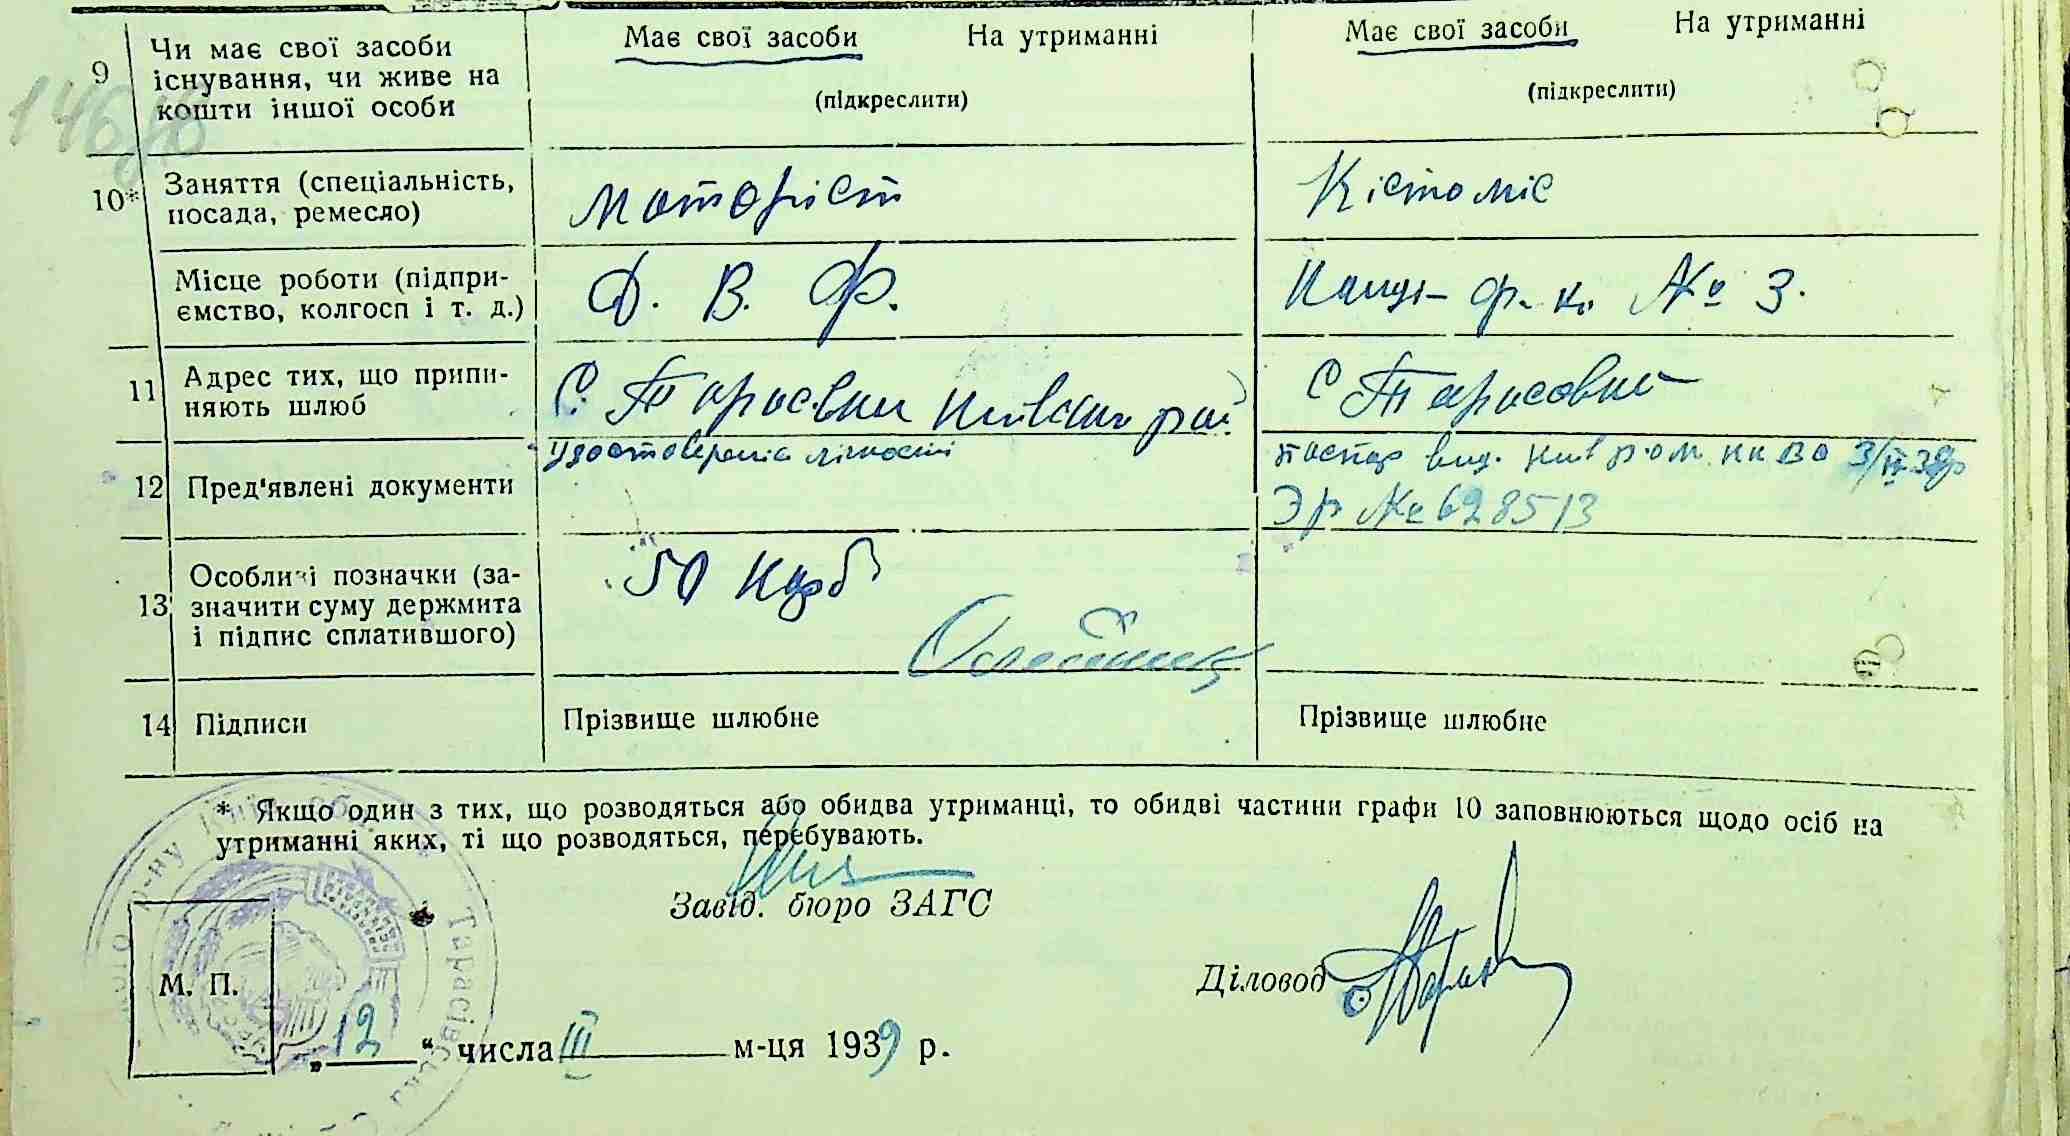 9 Чи має свої засоби існування, чи живе на кошти іншої особи
Має свої засоби На утриманні
(підкреслити)
Має свої засоби На утриманні
(підкреслити)
10* Заняття (спеціальність, посада, ремесло)
Моторіст
Кістоміс
Місце роботи (підприємство, колгосп і т. д.)
Д. В. Ф.
ф-ка № 3.
11 Адрес тих, що припиняють шлюб
С. Тарасовки Київськ рай
С Тарасовка
12 Пред'явлені документи
Удостоверенія лічності
паспор вид.
№ 628513
13 Особливі позначки (зазначити суму держмита і підпис сплатившого)
50 Карб
14 Підписи
Прізвище шлюбне
Прізвище шлюбне
* Якщо один з тих, що розводяться або обидва утриманці, то обидві частини графи 10 заповнюються щодо осіб на
утриманні яких, ті що розводяться, перебувають.
Завід. бюро ЗАГС
Діловод
М. П.
„12“ числа III м-ця 1939 р.